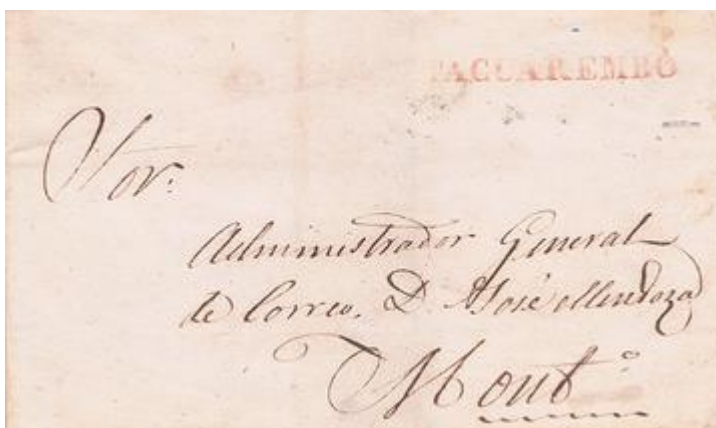 TACUAREMBÓ
Sor.
Administrador General
de Correo. D. José Mendoza
Mont.º